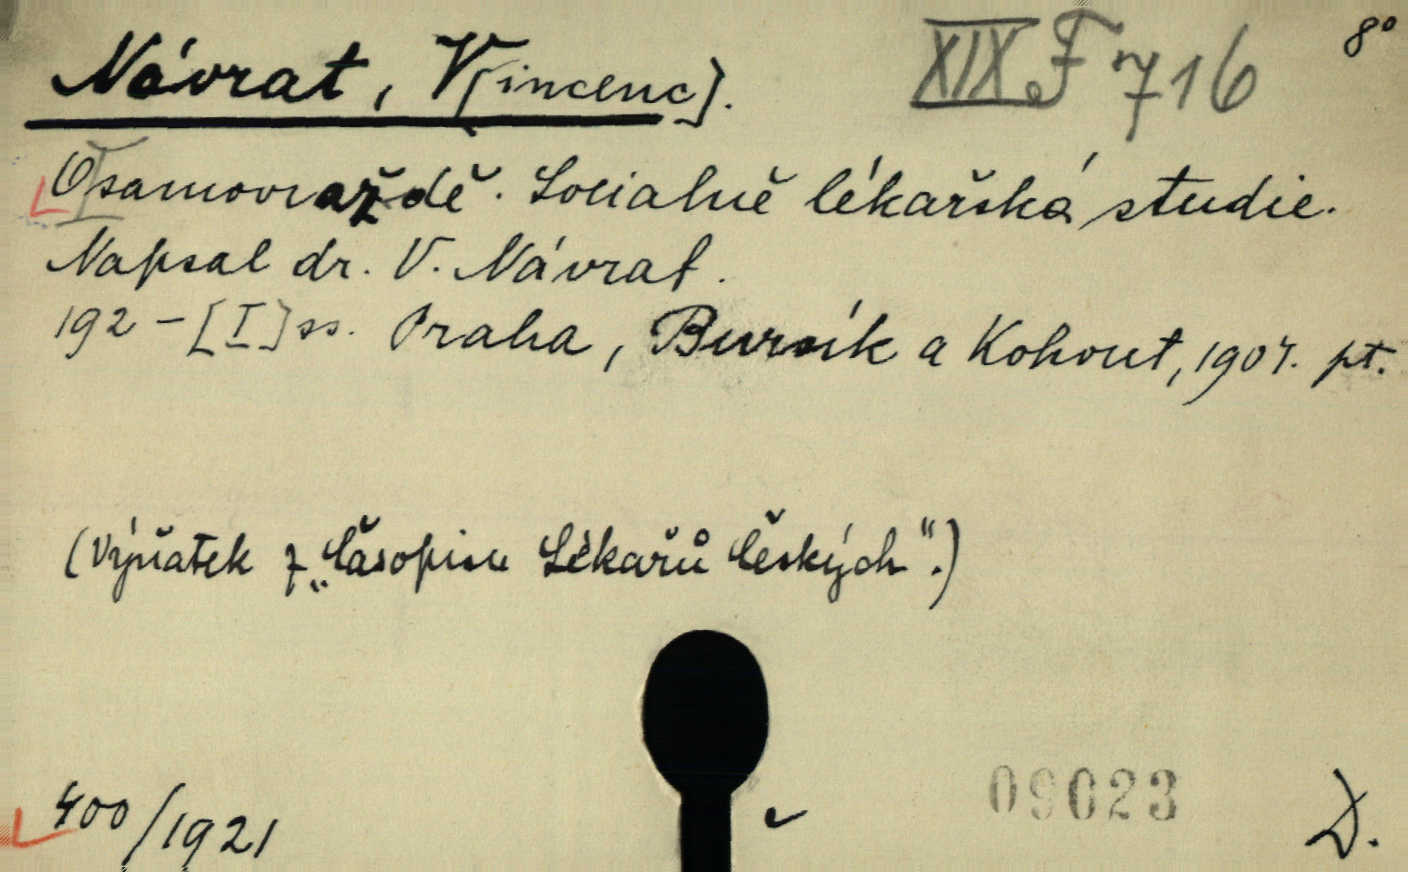 Návrat, V[incenc].
XIX F 716
8°
O samovraždě. Socialně lékařská studie.
Napsal dr. V. Návrat.
192 - [I] ss. Praha, Bursík a Kohout, 1907. pt.
(Výňatek z „Časopisu Lékařů Českých“.)
400/1921
09023
D.